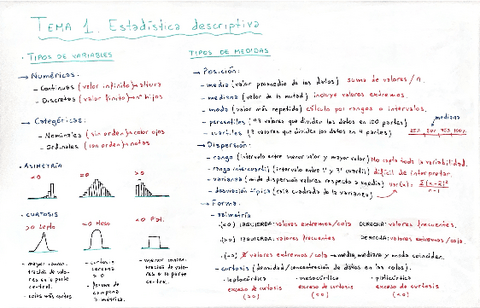 TEMA 1. Estadística descriptiva
· TIPOS DE VARIABLES
→ Numéricas:
- Continuas (valor infinito) → altura
- Discretas (valor finito) → nº hijos
→ Categóricas:
- Nominales (sin orden) → color ojos
- Ordinales (con orden) → notas
· ASIMETRÍA
<0 =0 >0
· CURTOSIS
>0 Lepto =0 Meso <0 Plat.
- mayor concentración de valores
- curtosis cercana a 0
- forma de campana
- menor concentración de valores
TIPOS DE MEDIDAS
→ Posición:
- media (valor promedio de los datos) suma de valores / n.
- mediana (valor de la mitad) incluye valores extremos.
- moda (valor más repetido) cálculo por rangos o intervalos.
- percentiles (99 valores que dividen los datos en 100 partes)
- cuartiles (3 valores que dividen los datos en 4 partes)
mediana
25% 50% 75% 100%
→ Dispersión:
- rango (intervalo entre menor valor y mayor valor) No capta toda la variabilidad.
- rango intercuartil (intervalo entre 1º y 3º cuartil) difícil de interpretar.
- varianza (mide dispersión valores respecto a media)
- desviación típica (raíz cuadrada de la varianza)
→ Forma:
- asimetría
(<0) IZQUIERDA: valores extremos/cola DERECHA: valores frecuentes.
(>0) IZQUIERDA: valores frecuentes DERECHA: valores extremos/cola.
(=0) valores extremos/cola → media, mediana y moda coinciden.
- curtosis (densidad/concentración de datos en las colas).
- leptocúrtica - mesocúrtica - platicúrtica
exceso de curtosis exceso de curtosis exceso de curtosis
(>0) (=0) (<0)